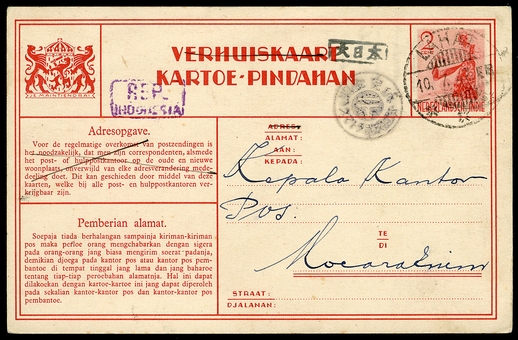 VERHUISKAART
大日本
KARTOE-PINDAHAN
2
REP.
INDONESIA
Adresopgave.
Voor de regelmatige overkomst van postzendingen is
het noodzakelijk, dat men zijn correspondenten, alsmede
het post- of hulppostkantoor op de oude en nieuwe
woonplaats, onverwijld van elke adresverandering mede-
deeling doet. Dit kan geschieden door middel van deze
kaarten, welke bij alle post- en hulppostkantoren ver-
krijgbaar zijn.
Pemberian alamat.
Soepaja tiada berhalangan sampainja kiriman-kiriman
pos maka perloe orang mengchabarkan dengan sigera
pada orang-orang jang biasa mengirim soerat padanja,
demikian djoega pada kantor pos atau kantor pos pem-
bantoe di tempat tinggal jang lama dan jang baharoe
tentang tiap-tiap peroebahan alamatnja. Hal ini dapat
dilakoekan dengan kartoe-kartoe ini jang dapat diperoleh
pada sekalian kantor-kantor pos dan kantor-kantor pos
pembantoe.
ADRES:
ALAMAT:
AAN:
KEPADA:
Kepala Kantor
Pos.
TE
DI
Moearaenim
STRAAT:
DJALANAN: